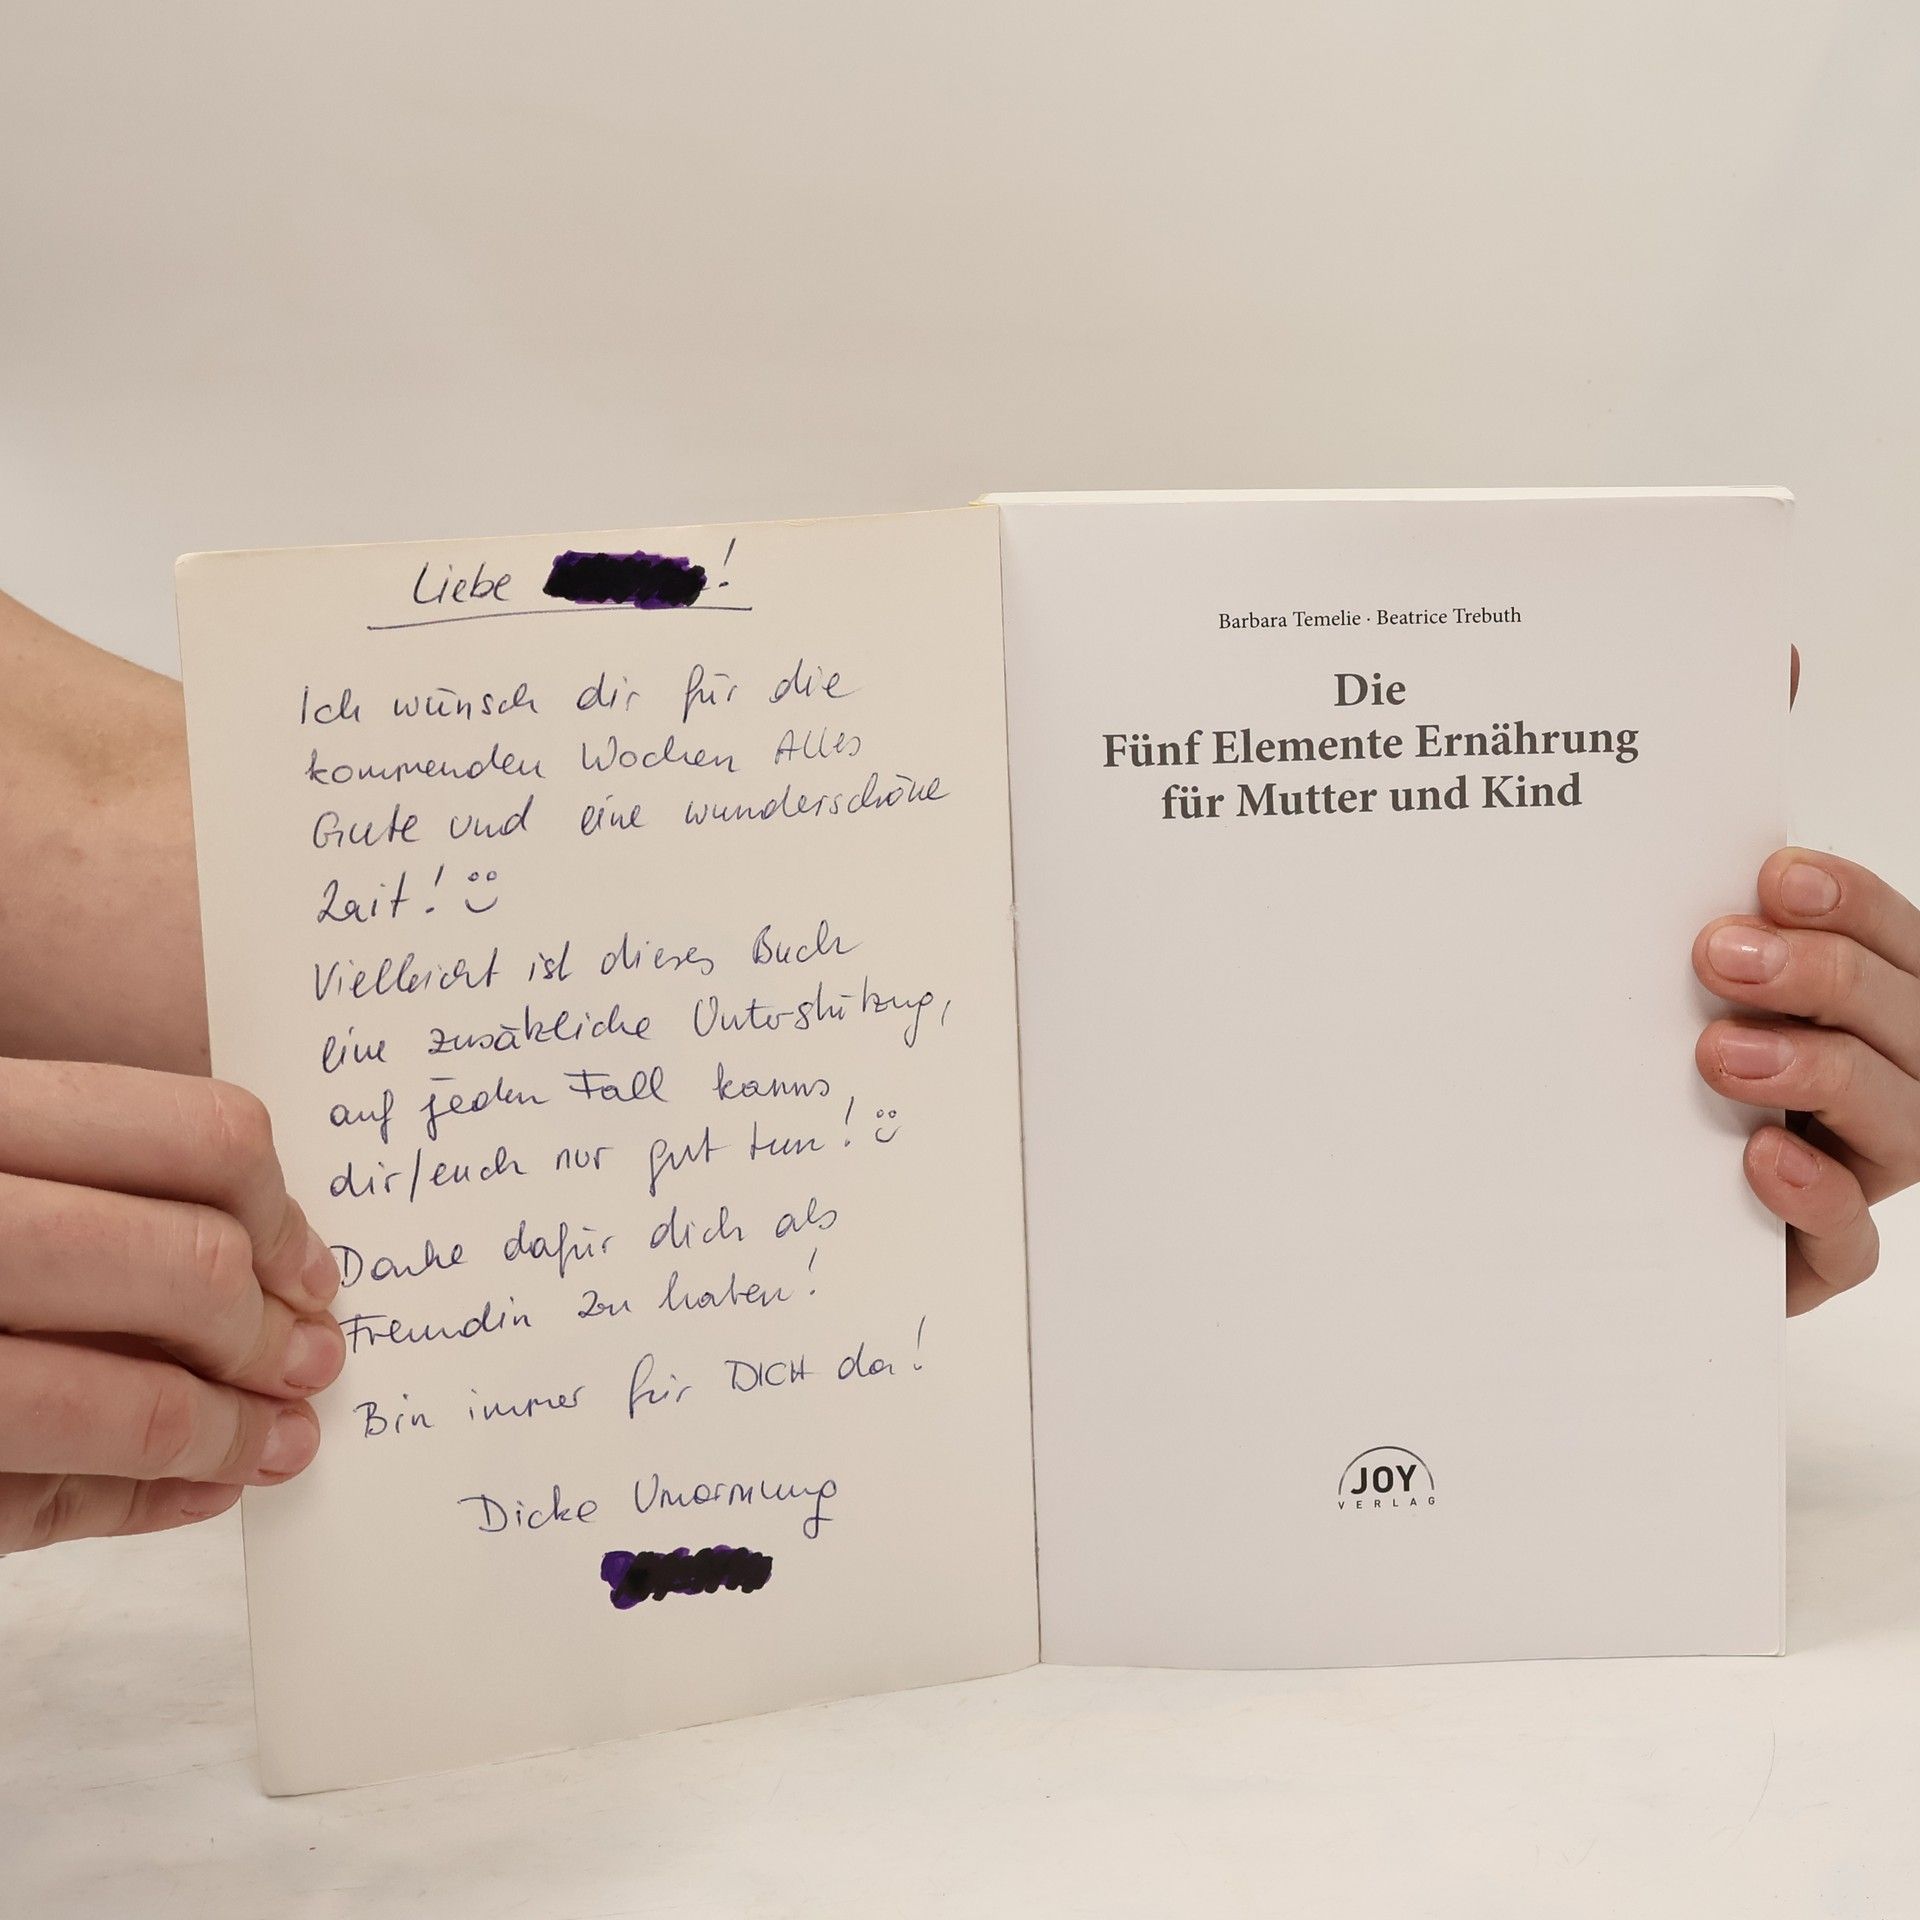 Liebe !
Ich wünsch dir für die
kommenden Wochen Alles
Gute und eine wunderschöne
Zeit! 
Vielleicht ist dieses Buch
eine zusätzliche Unterstützung,
auf jeden Fall kanns
dir/euch nur gut tun!
Danke dafür dich als
Freundin zu haben!
Bin immer für DICH da!
Dicke Umarmung
Barbara Temelie · Beatrice Trebuth
Die
Fünf Elemente Ernährung
für Mutter und Kind
JOY
VERLAG